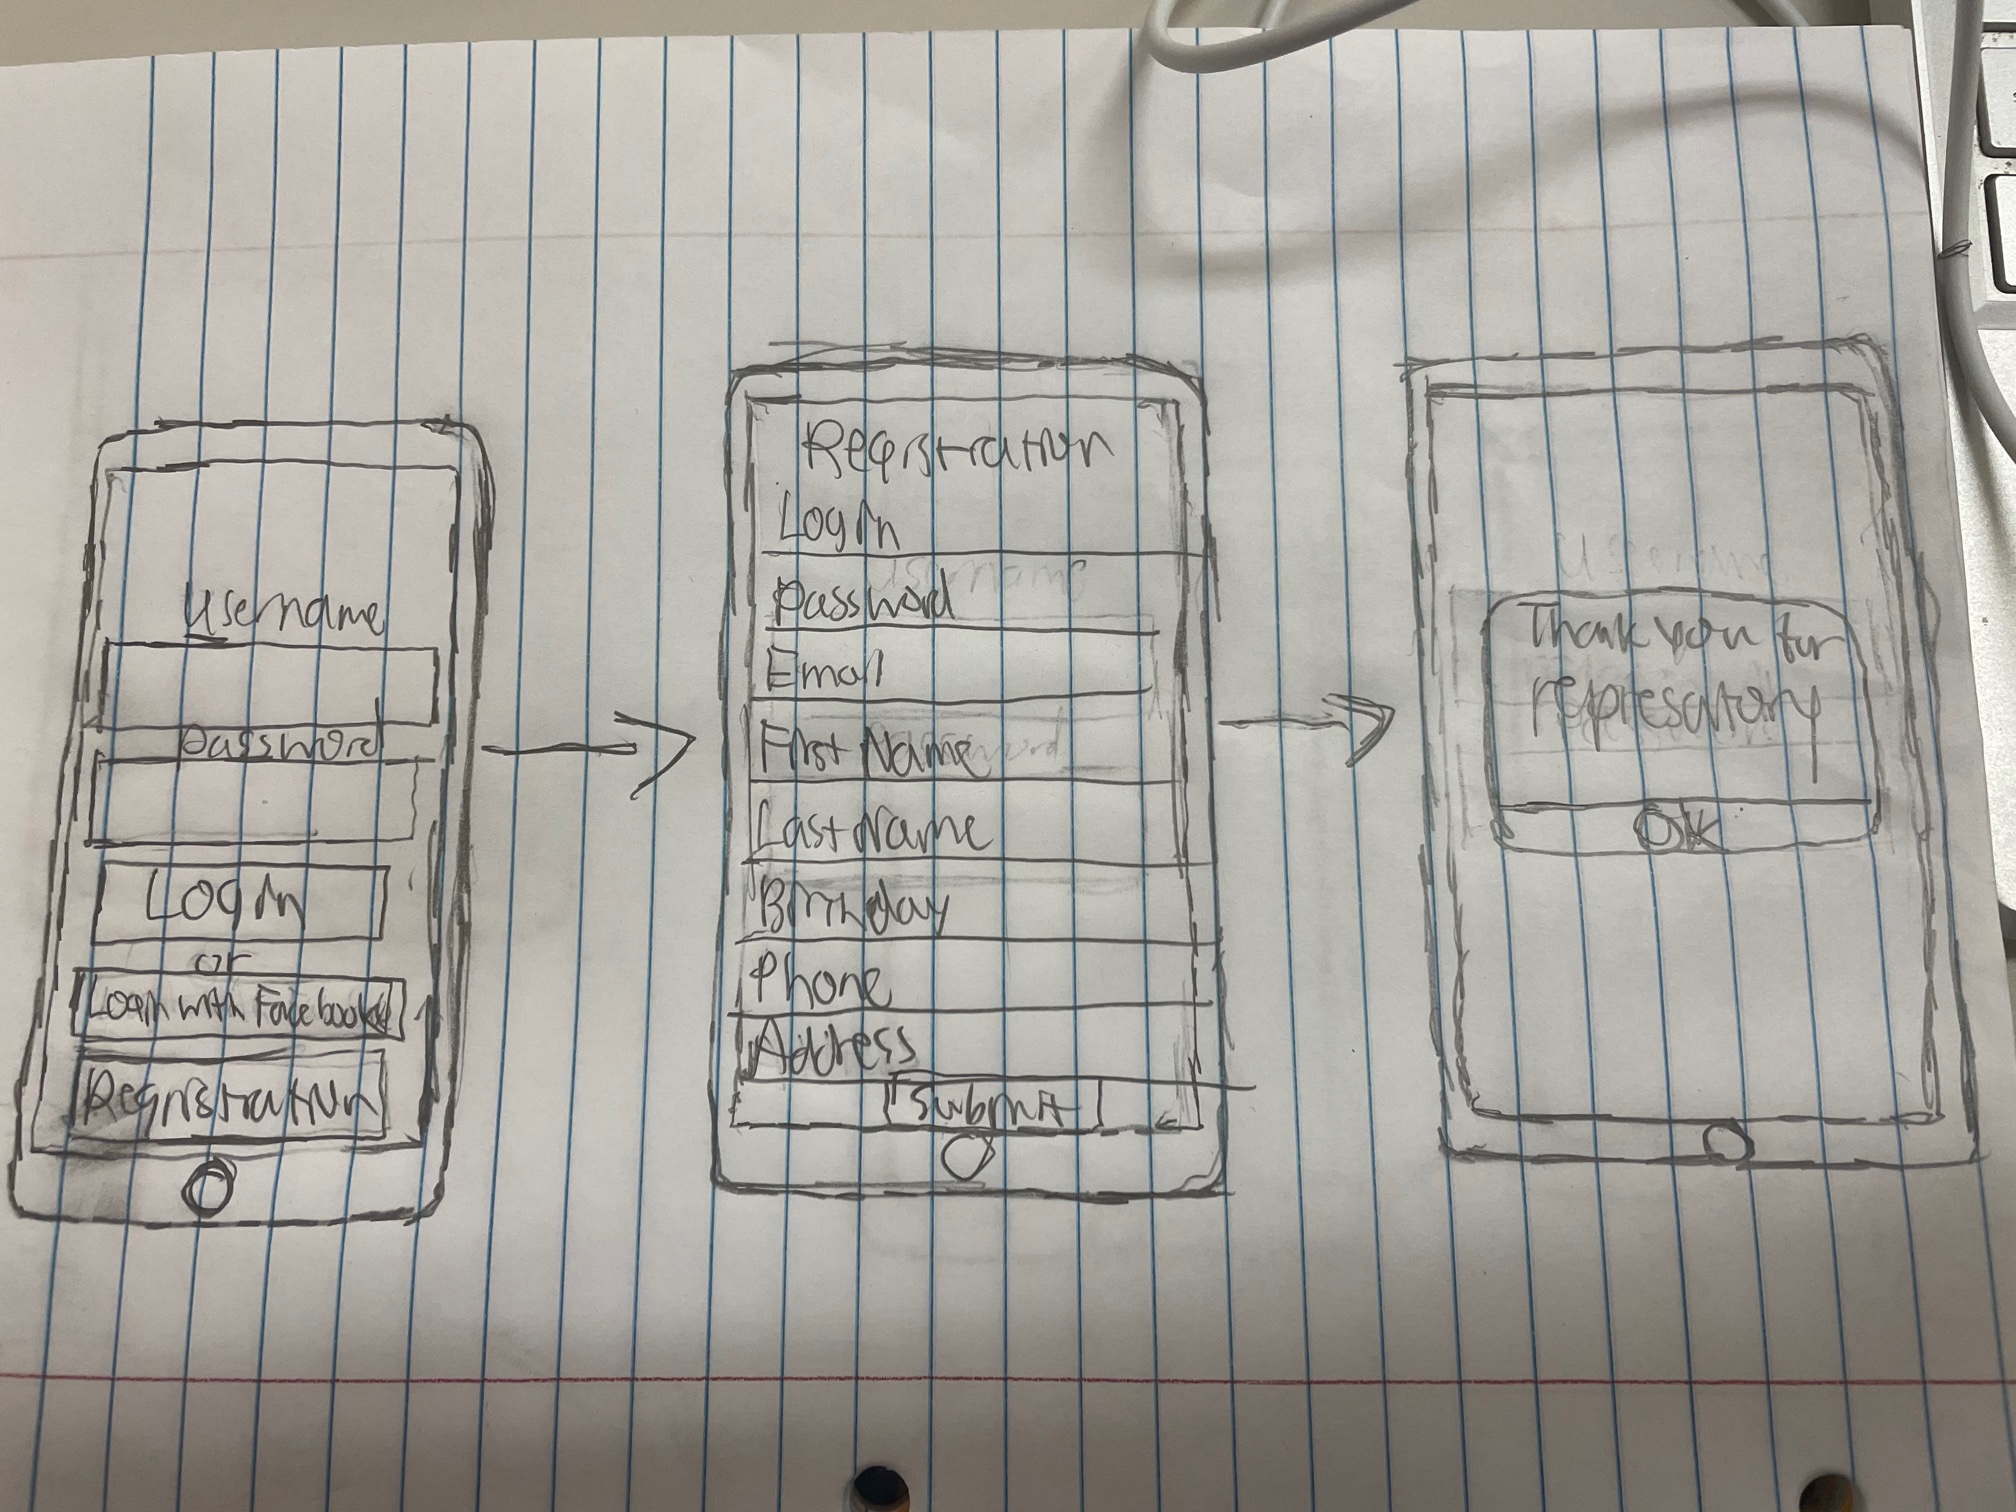 Username
Password
Login
or
Login with Facebook
Registration
Registration
Login
Password
Email
First Name
Last Name
Birthday
Phone
Address
Submit
Thank you for
OK